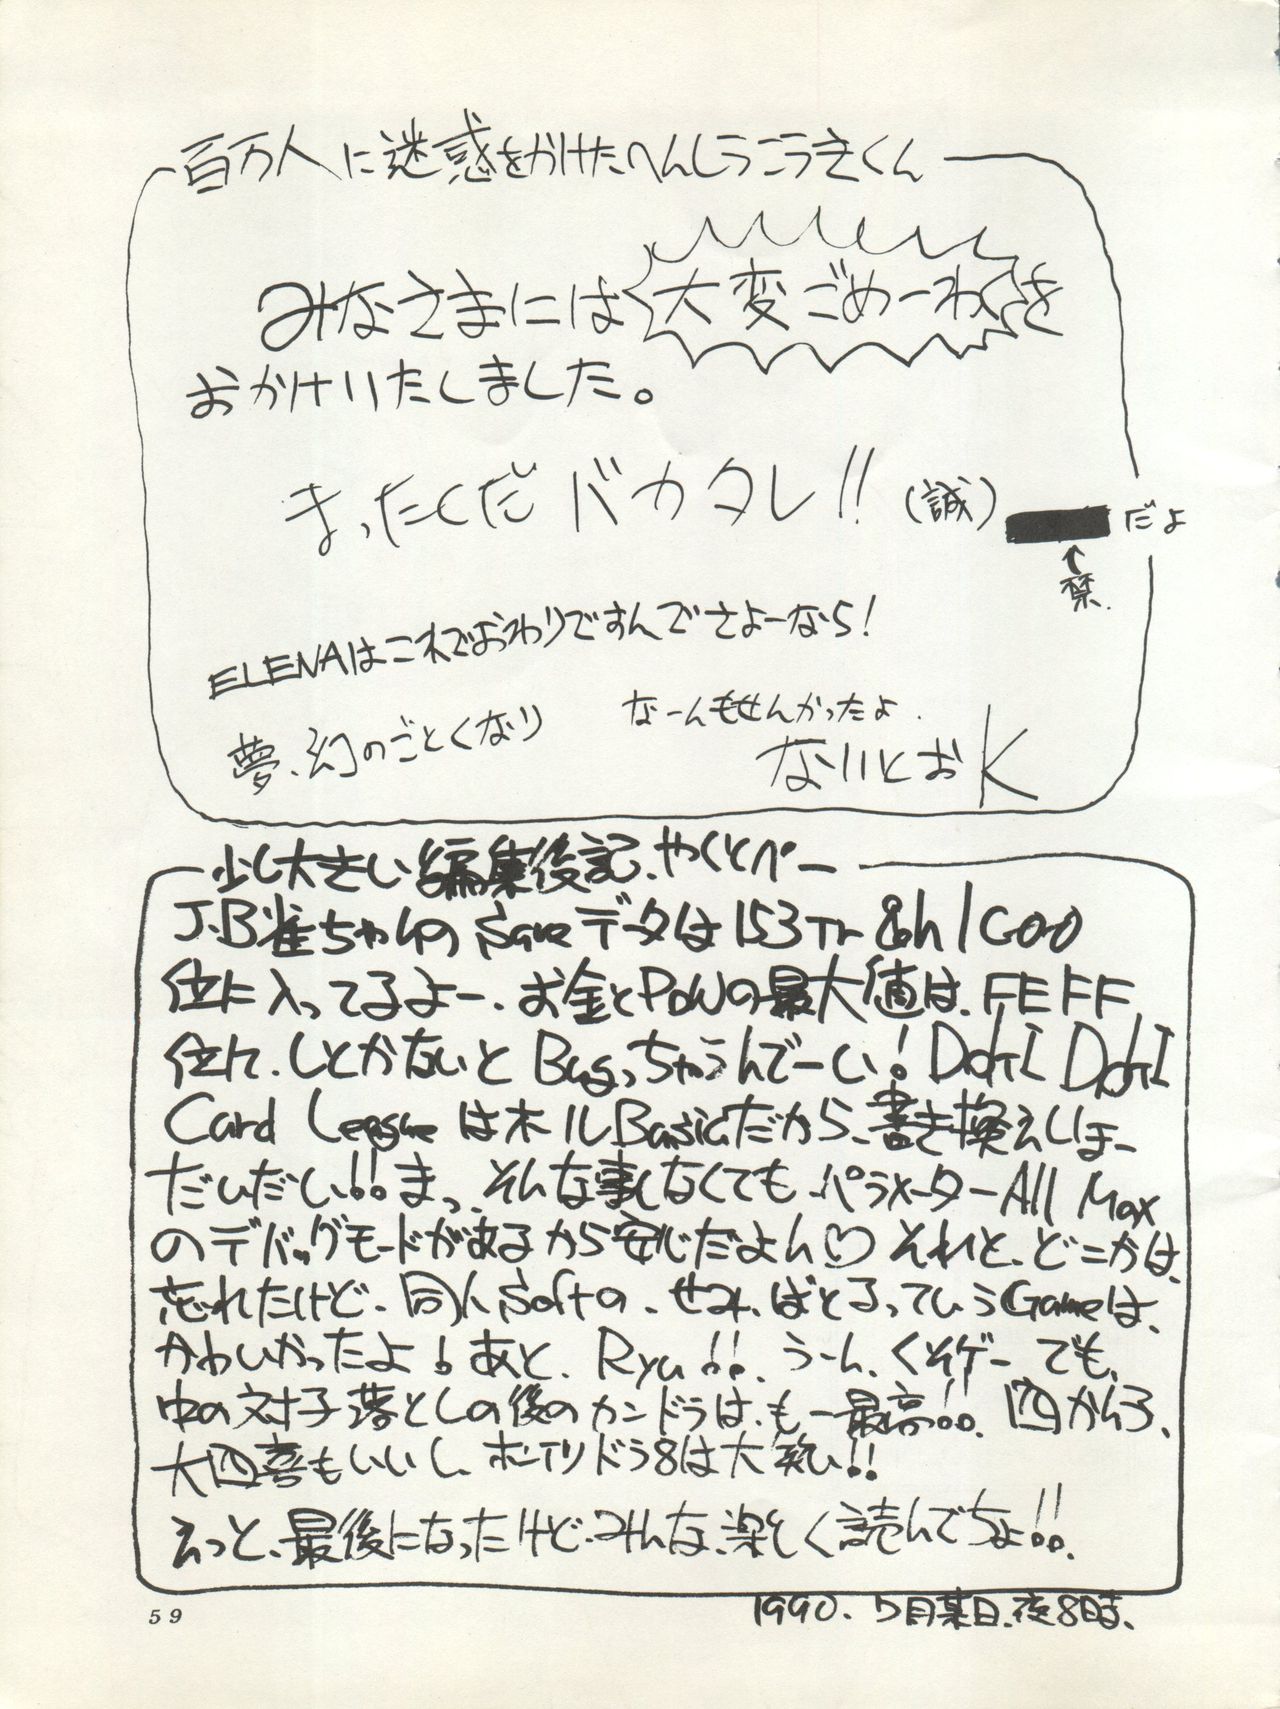 百万人に迷惑をかけたへんしうこうきくん
みなさまには大変ごめーわくを
おかけいたしました。
まったくだバカタレ!!(誠)
だよ
↑
禁.
ELENAはこれでおわりですんでさよーなら!
夢、幻のごとくなり
なーんもせんかったよ.
ないとおK
少し大きい編集後記、やくとぺー
J.B雀ちゃんのSaveデータは153Tr 8h 1C00
位に入ってるよー、お金とPOWの最大値は、FEFF
位に、しとかないとBugっちゃうんでーい!DOKI DOKI
Card LeagueはオールBasicだから、書き換えしほー
だいだい!!まっ、そんな事しなくてもパラメーターAll Max
のデバッグモードがあるから安心だよん♡それと、どこかは、
忘れたけど、同人Softの、せみ、ばとるっていうGameは、
かわいかったよ!あと、Ryu!!、うーん、くそゲー でも、
中の対子落としの後のカンドラは、も一最高!!。四かんつ、
大四喜もいいし、ホーテイリドラ8は大笑い!!
えっと、最後になったけど、みんな、楽しく読んでちょ!!。
59
1990.5月某日、夜8時、